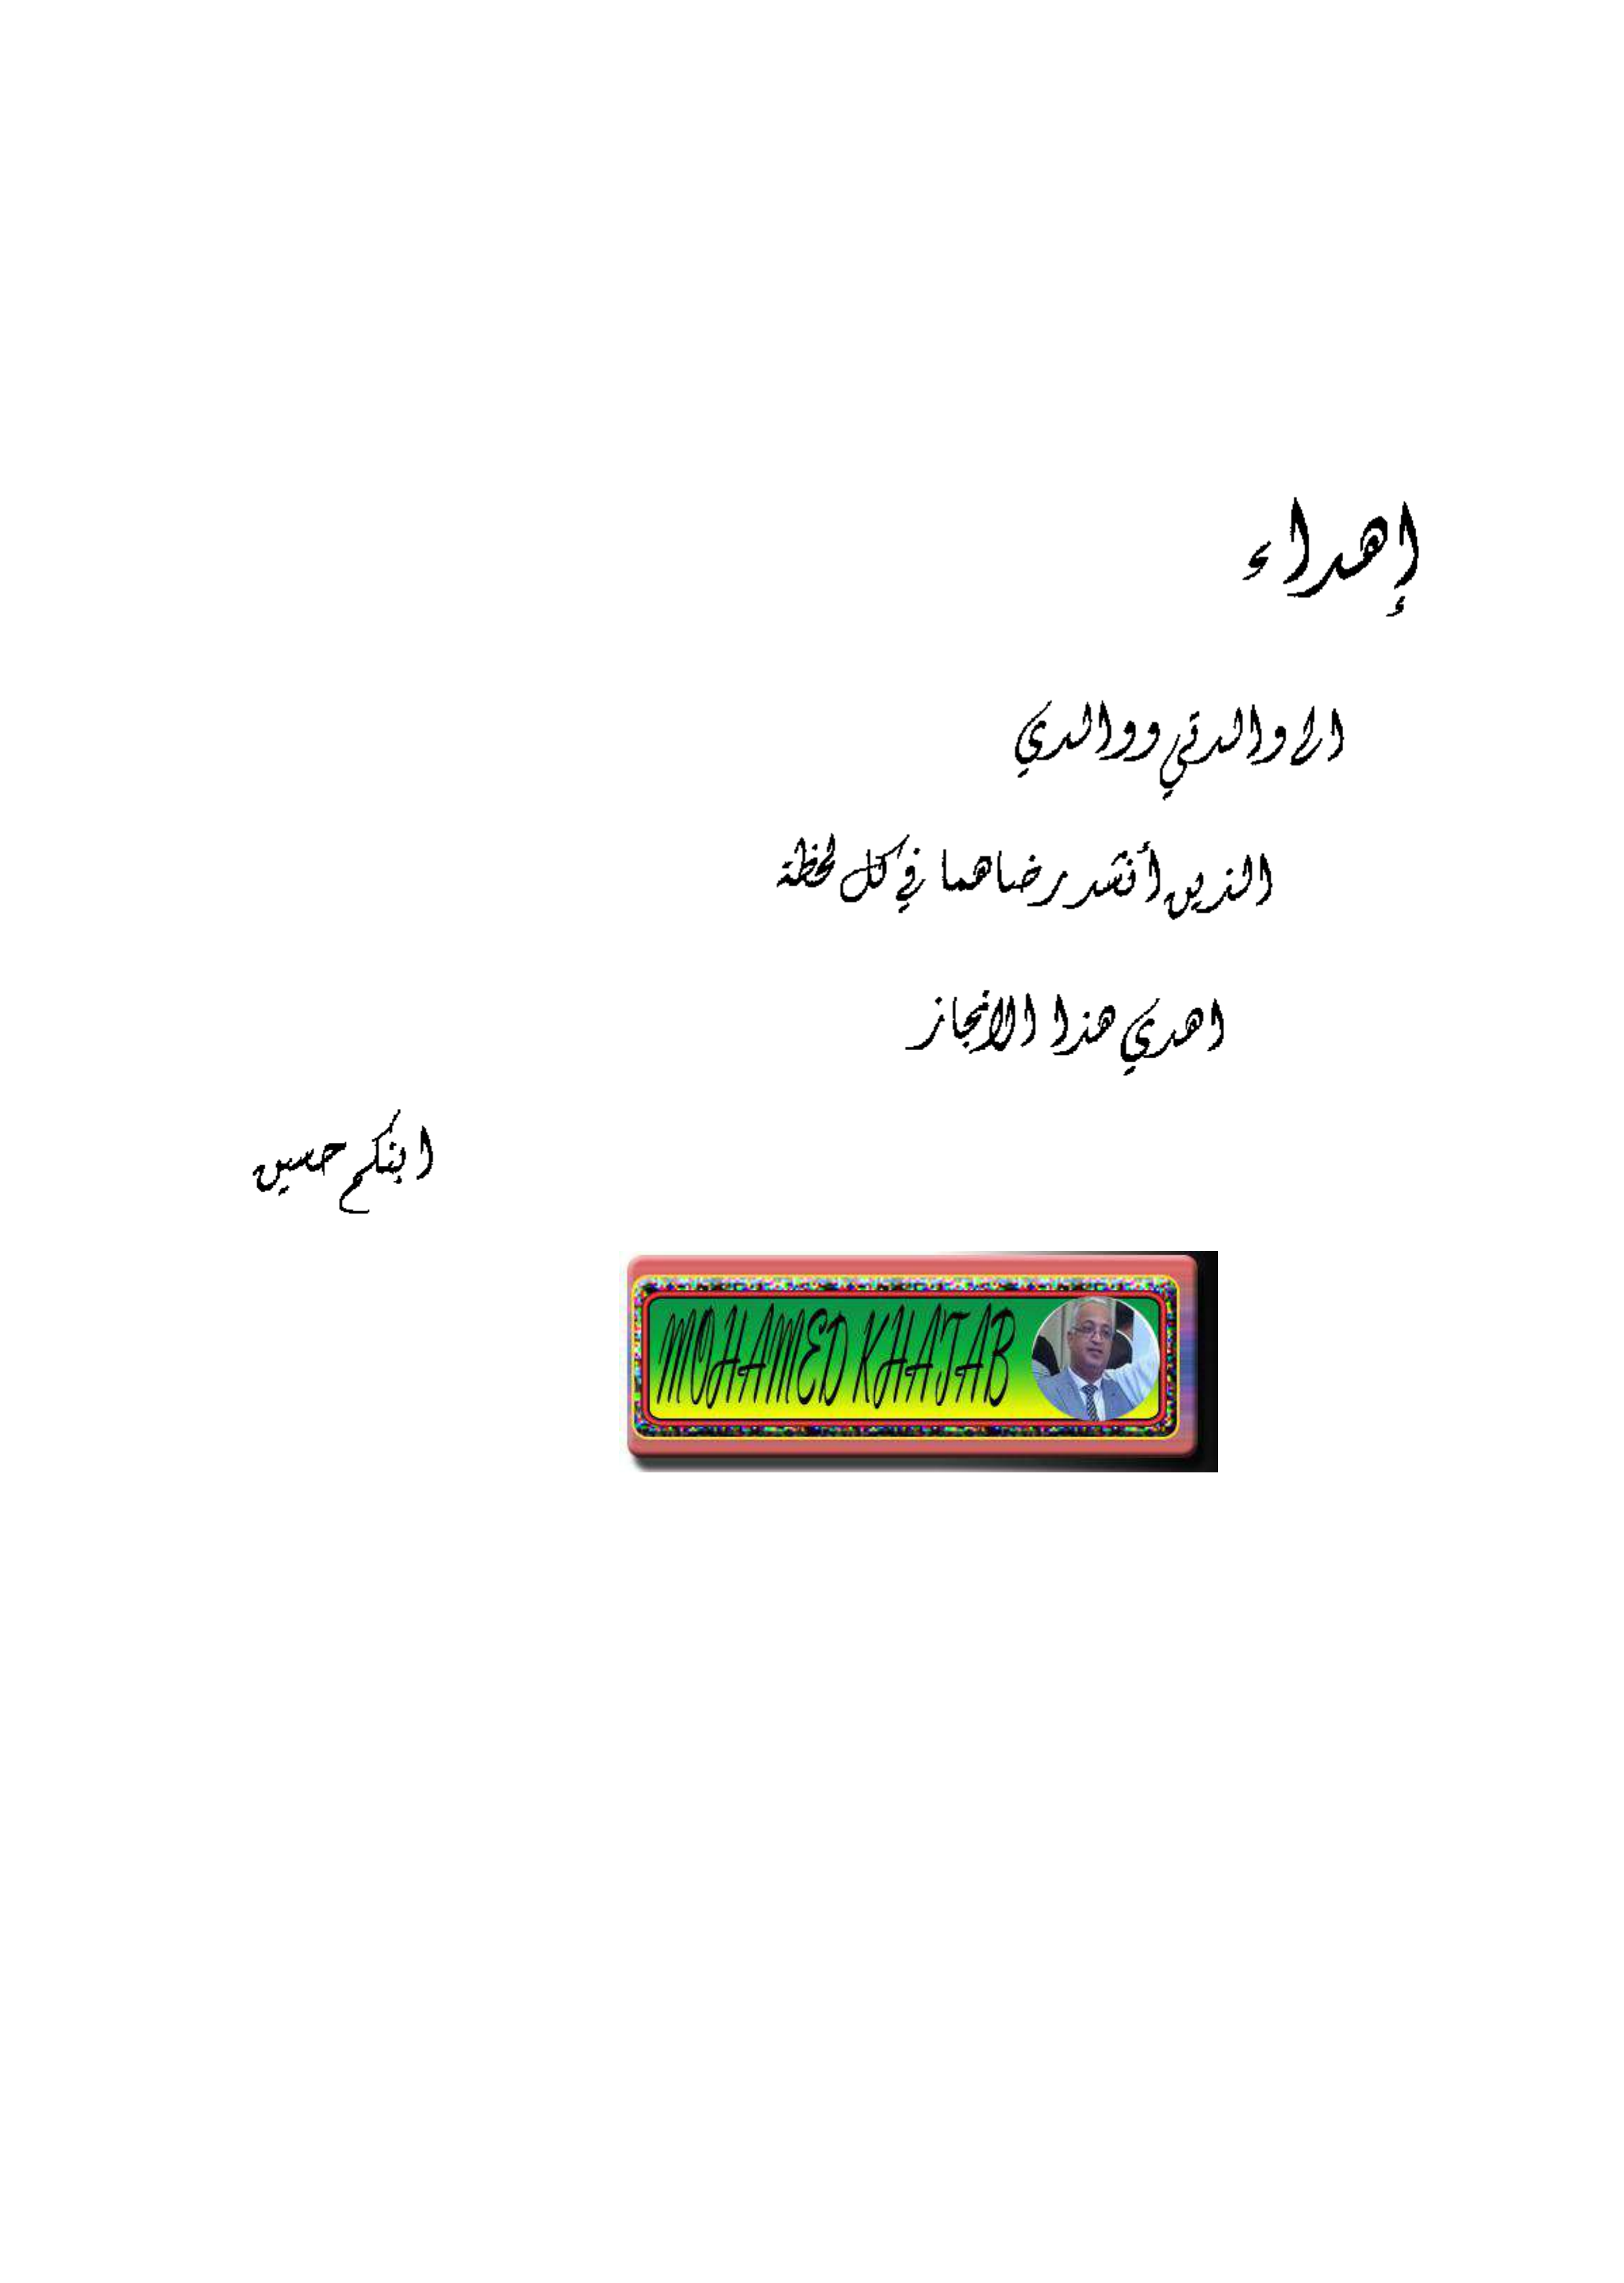 إهداء
الى والدتي ووالدي
الذين أنشد رضاهما في كل لحظة
اهدي هذا الانجاز
ابنكم حسين
MOHAMED KHATAB